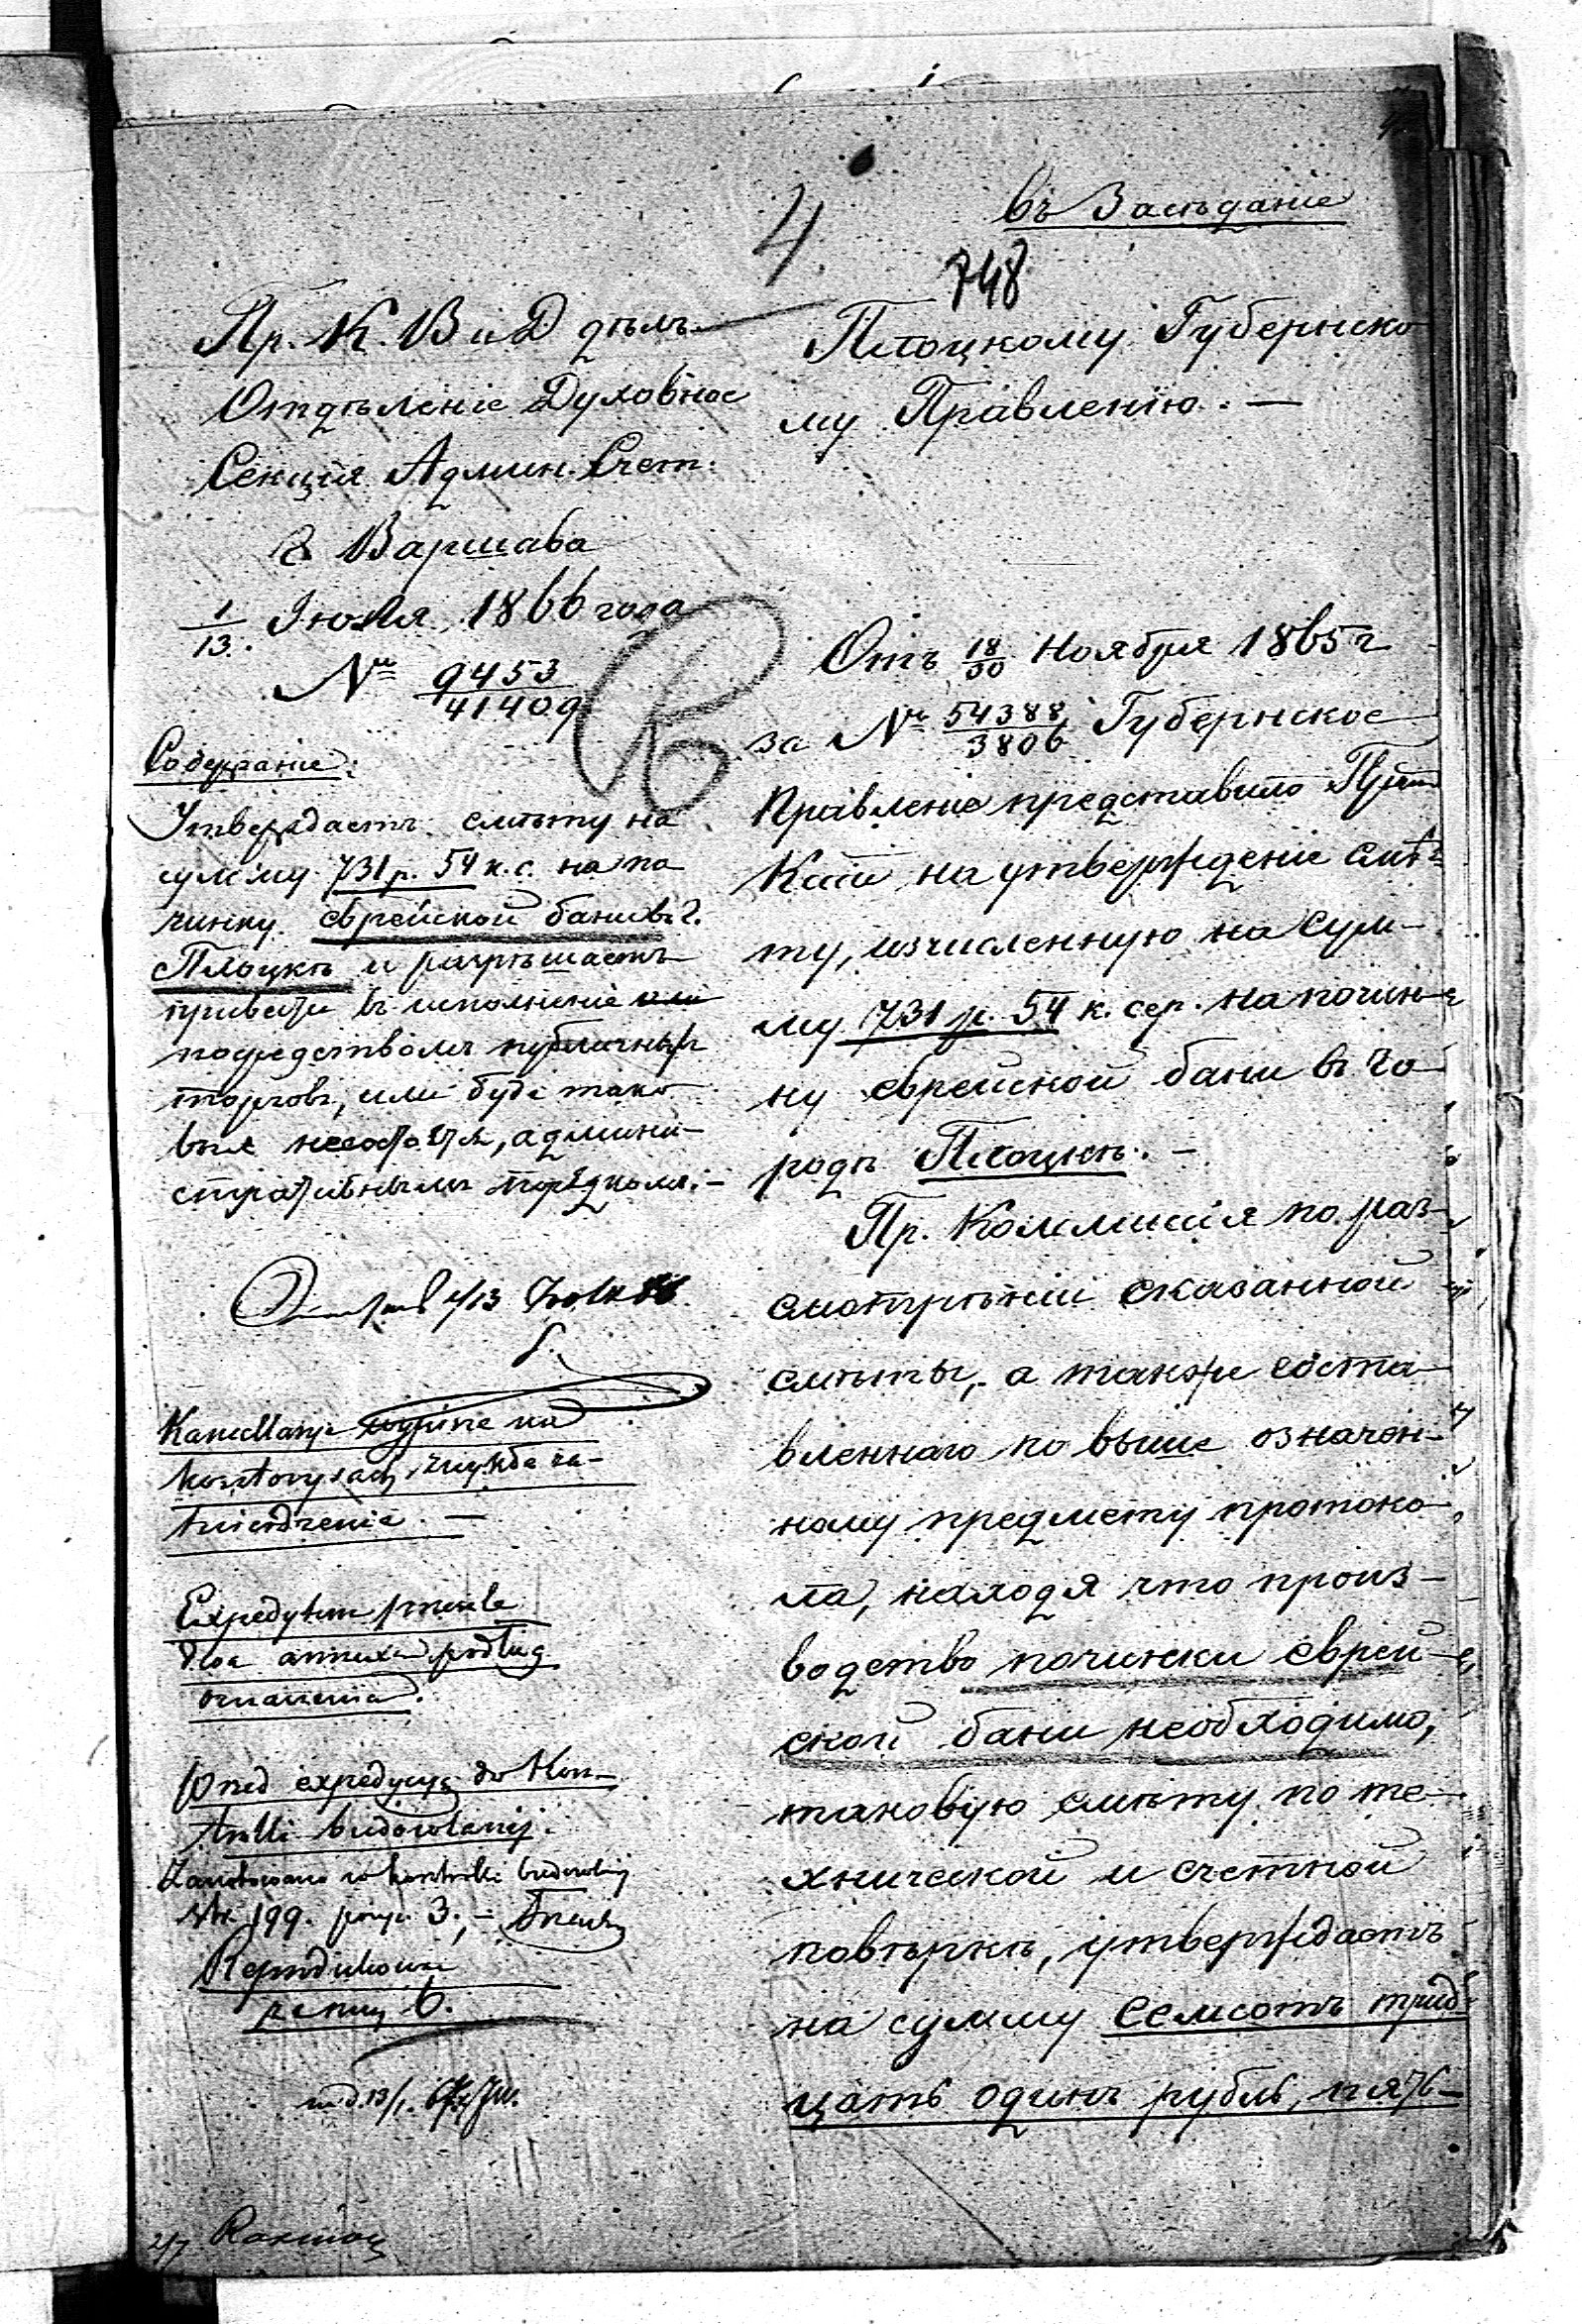 4
въ Засѣданіе
748
Пр. К. В и Д дѣлъ
Отдѣленіе Духовное
Секція Админ. Счет:
г Варшава
1/13. Іюля 1866 года
№ 9453/41409
Содержаніе:
Утверждаетъ смѣту на
сумму 731 р. 54 к. с. на по
чинку еврейской бани въ г.
Плоцкѣ и разрѣшаетъ
привести въ исполненіе или
посредствомъ публичныхъ
торговъ, или буде тако
выя несостоятся, админи-
стративнымъ порядкомъ.-
4/13
Kancellarja na
kosztorysach zrugiem za-
twierdzenie. —
Expedytur
podług
oznaczenia.
Przed expedycyą do Kon-
trolli budowlanej.
Zanotowano w kontrolli budowlanej
str. 199. poz. 3.,-
6.
Плоцкому Губернско
му Правленію. —
Отъ 18/30 Ноября 1865 г
за № 54388/3806 Губернское
Правленіе представило Прит
Кспп на утвержденіе смѣ-
ту, изчисленную на сум-
му 731 р. 54 к. сер. на почин-
ку еврейской бани въ го
родѣ Плоцкѣ. -
Пр. Коммисія по раз-
смотрѣніи сказанной
смѣты, а также соста-
вленнаго по выше означен-
ному предмету протоко-
ла, находя что произ-
водство починки еврей-
ской бани необходимо,
таковую смѣту по те-
хнической и счетной
повѣркѣ, утверждаетъ
на сумму семсотъ трид-
цать одинъ рубль, пять-